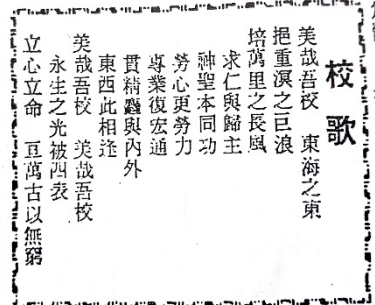 校歌
美哉吾校　東海之東
挹重溟之巨浪
培萬里之長風
求仁與歸主
神聖本同功
勞心更勞力
專業復宏通
貫精麤與內外
東西此相逢
美哉吾校　美哉吾校
永生之光被四表
立心立命　亘萬古以無窮